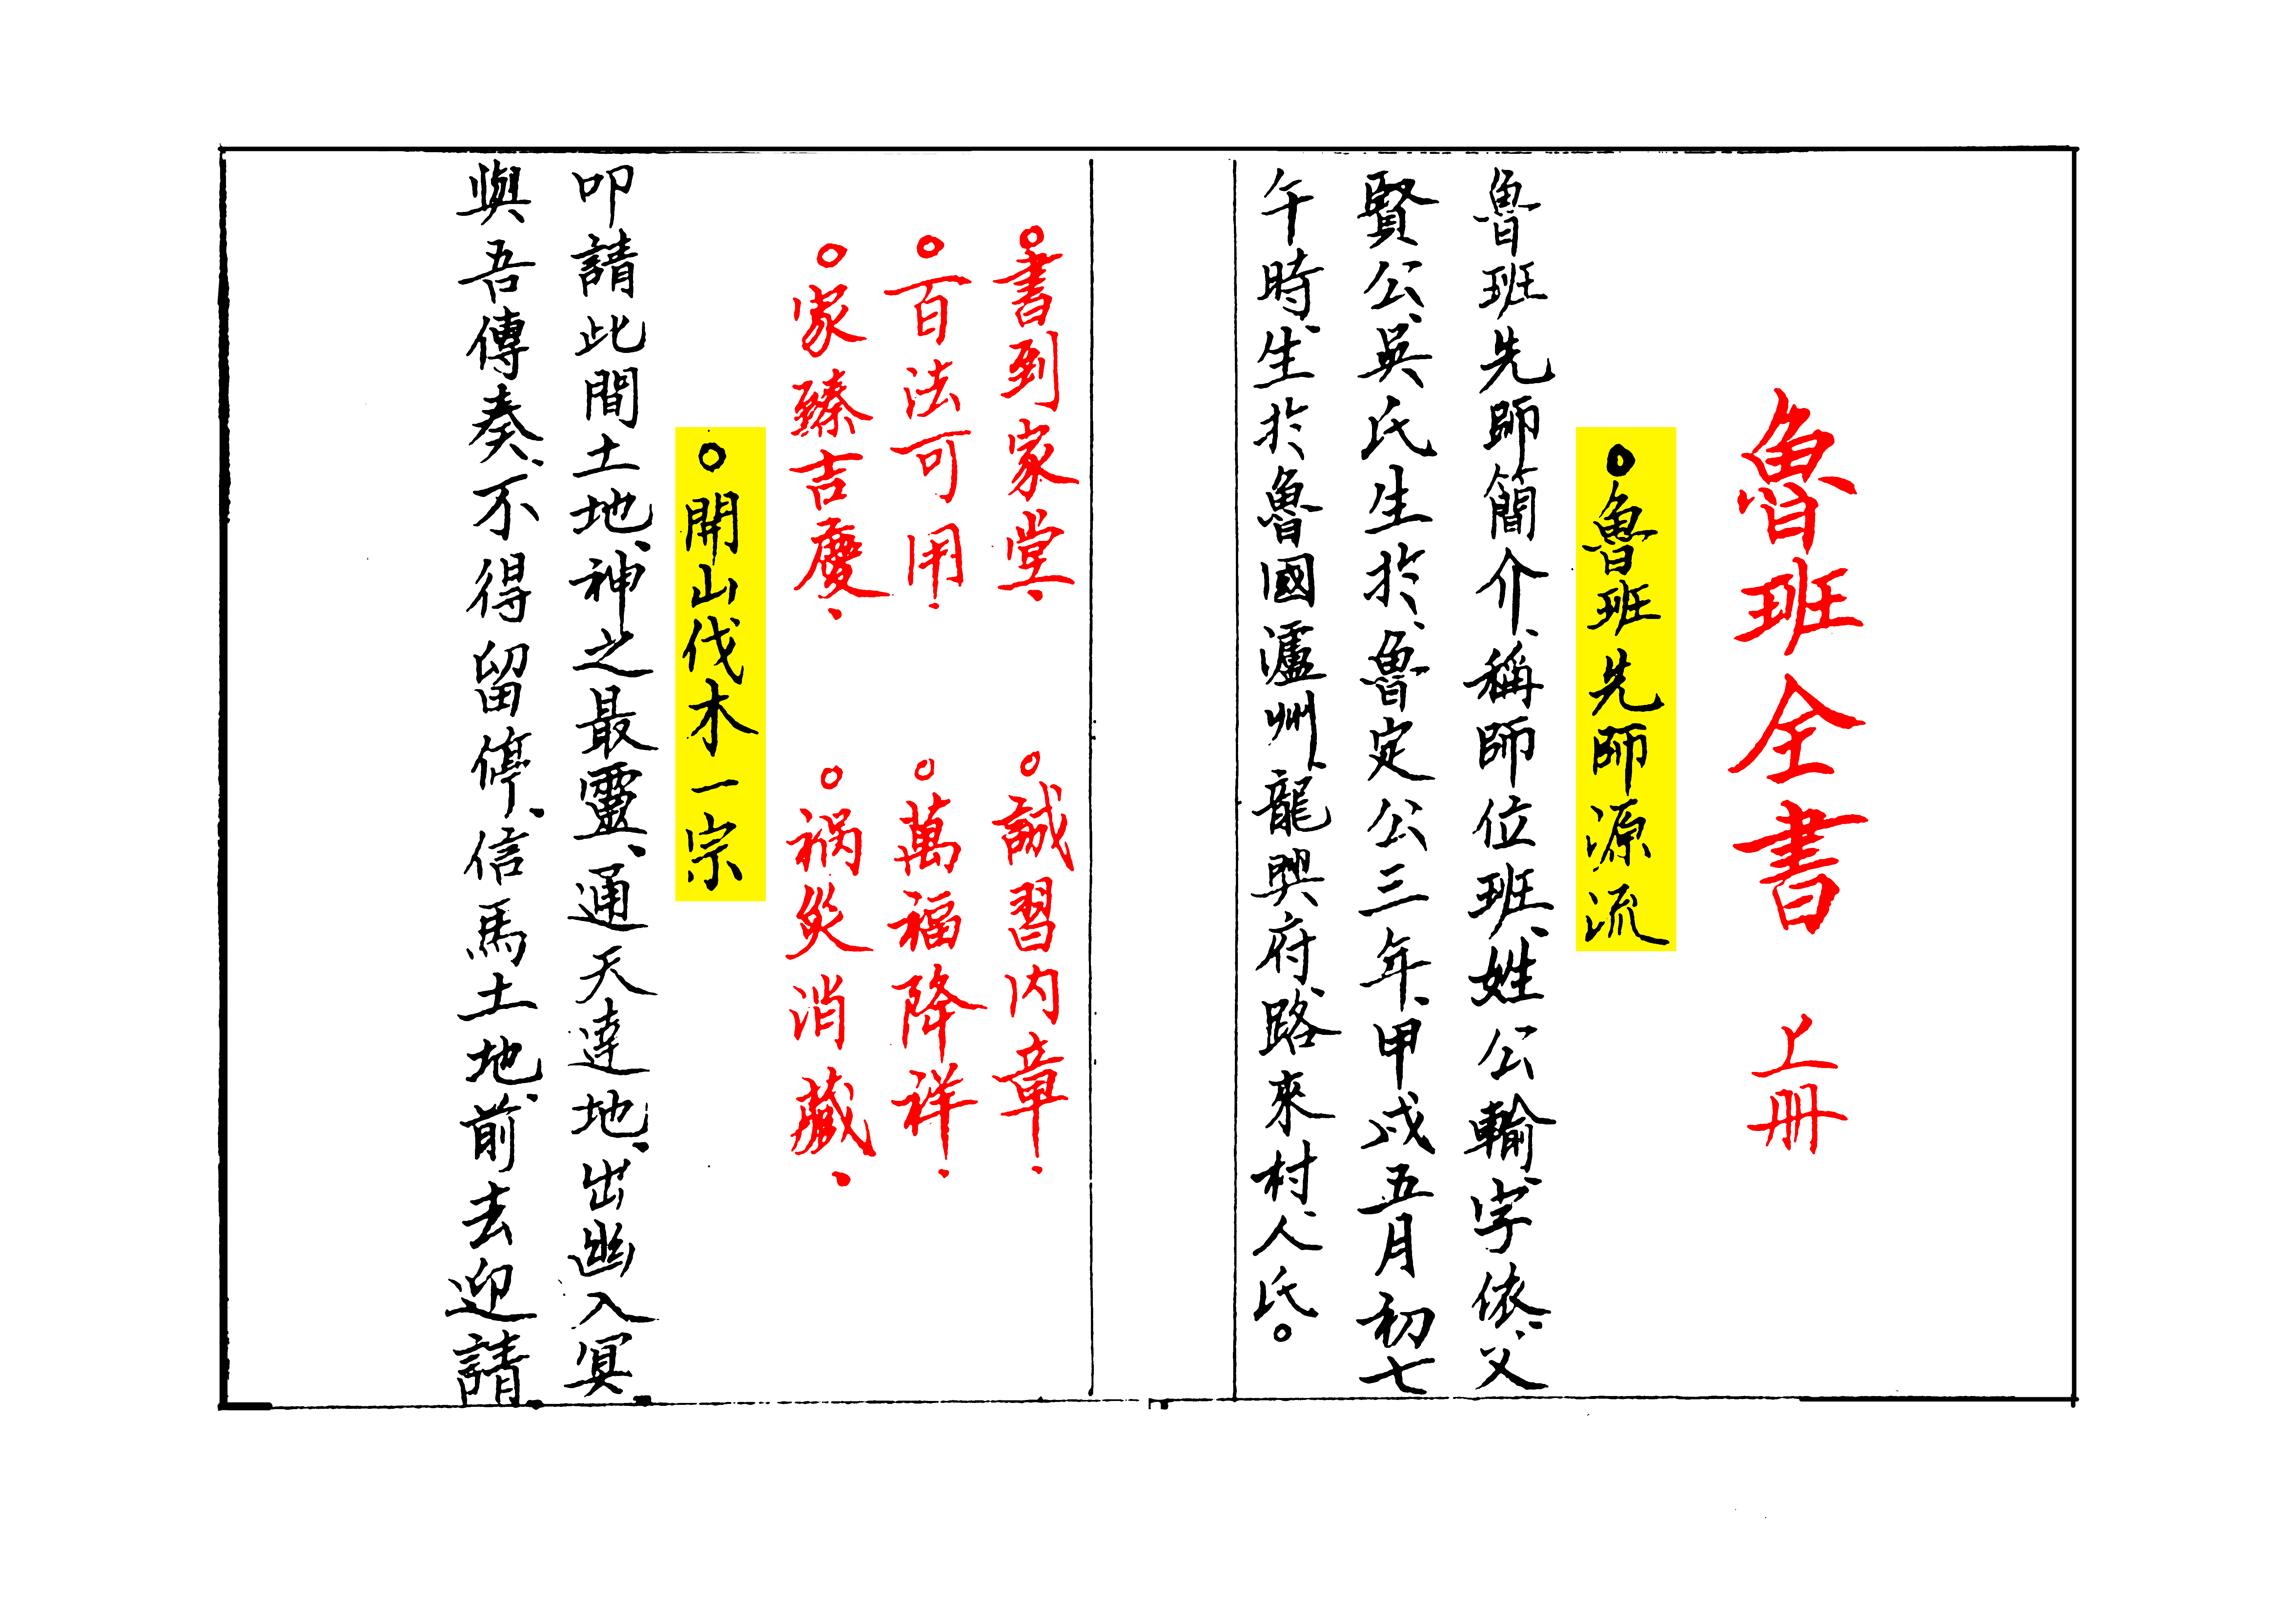 魯班全書 上冊
○魯班先師源流
魯班先師簡介、稱師位班、姓公輸、字依、父
賢公、吳氏生於、魯定公三年、甲戌五月初七
午時、生於魯國瀘州、龍興府、路來村、人氏。
○書到家堂、 ○誠習內章、
○百法可用、 ○萬福降祥、
○家臻吉慶、 ○禍災消藏、
○開山伐木一宗
叩請此間土地、神之最靈、通天達地、出幽入冥、
與吾傳奏、不得留停、信馬土地、前去迎請、